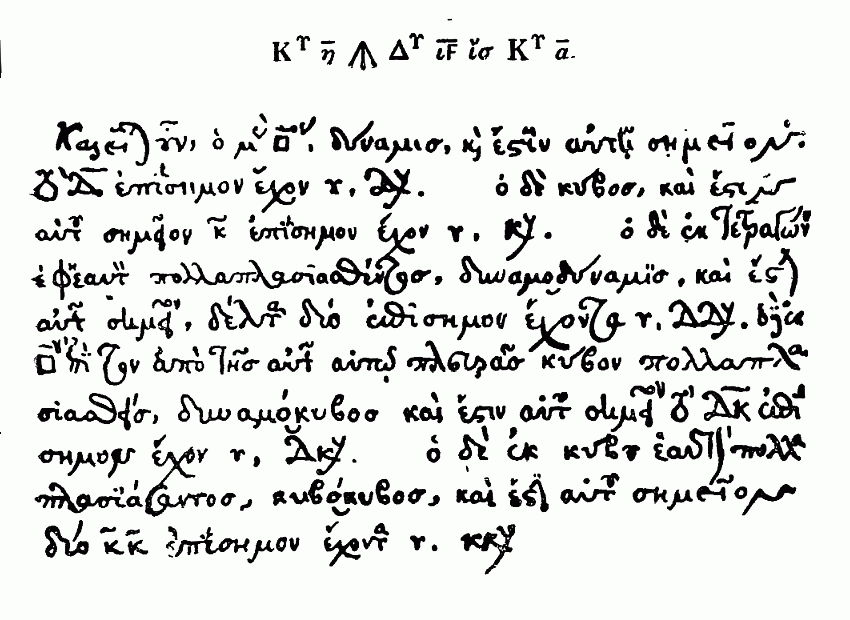 Κ^Υ η̄ ⩚ Δ^Υ ιϝ̄ ἴσ Κ^Υ ᾱ.
Καλεῖται οὖν, ὁ μὲν □ος, δύναμισ, κ̀ ἔστιν αὐτῆς σημεῖον
τὸ Δ̄ ἐπίσημον ἔχον υ, Δυ. ὁ δὲ κύβοσ, καὶ ἔστιν
αὐτοῦ σημεῖον κ̄ ἐπίσημον ἔχον υ, κυ. ὁ δὲ ἐκ τετραγών
ἐφ' ἑαυτὸ πολλαπλασιασθέντοσ, δυναμοδύναμισ, καὶ ἔστιν
αὐτοῦ σημεῖον, δέλτα δύο ἐπίσημον ἔχοντα υ, ΔΔυ. ὁ δὲ ἐκ
□ου ἐπὶ τὸν ἀπὸ τῆσ αὐτοῦ αὐτῷ πλευρᾶσ κύβον πολλαπλα
σιασθέντοσ, δυναμόκυβοσ καὶ ἔστιν αὐτοῦ σημεῖον τὸ Δ̄Κ ἐπί
σημον ἔχον υ, Δκυ. ὁ δὲ ἐκ κύβου ἑαυτὸν πολλα
πλασιάσαντοσ, κυβόκυβοσ, καὶ ἔστιν αὐτοῦ σημεῖον
δύο κ̄κ̄ ἐπίσημον ἔχοντα υ. κκυ